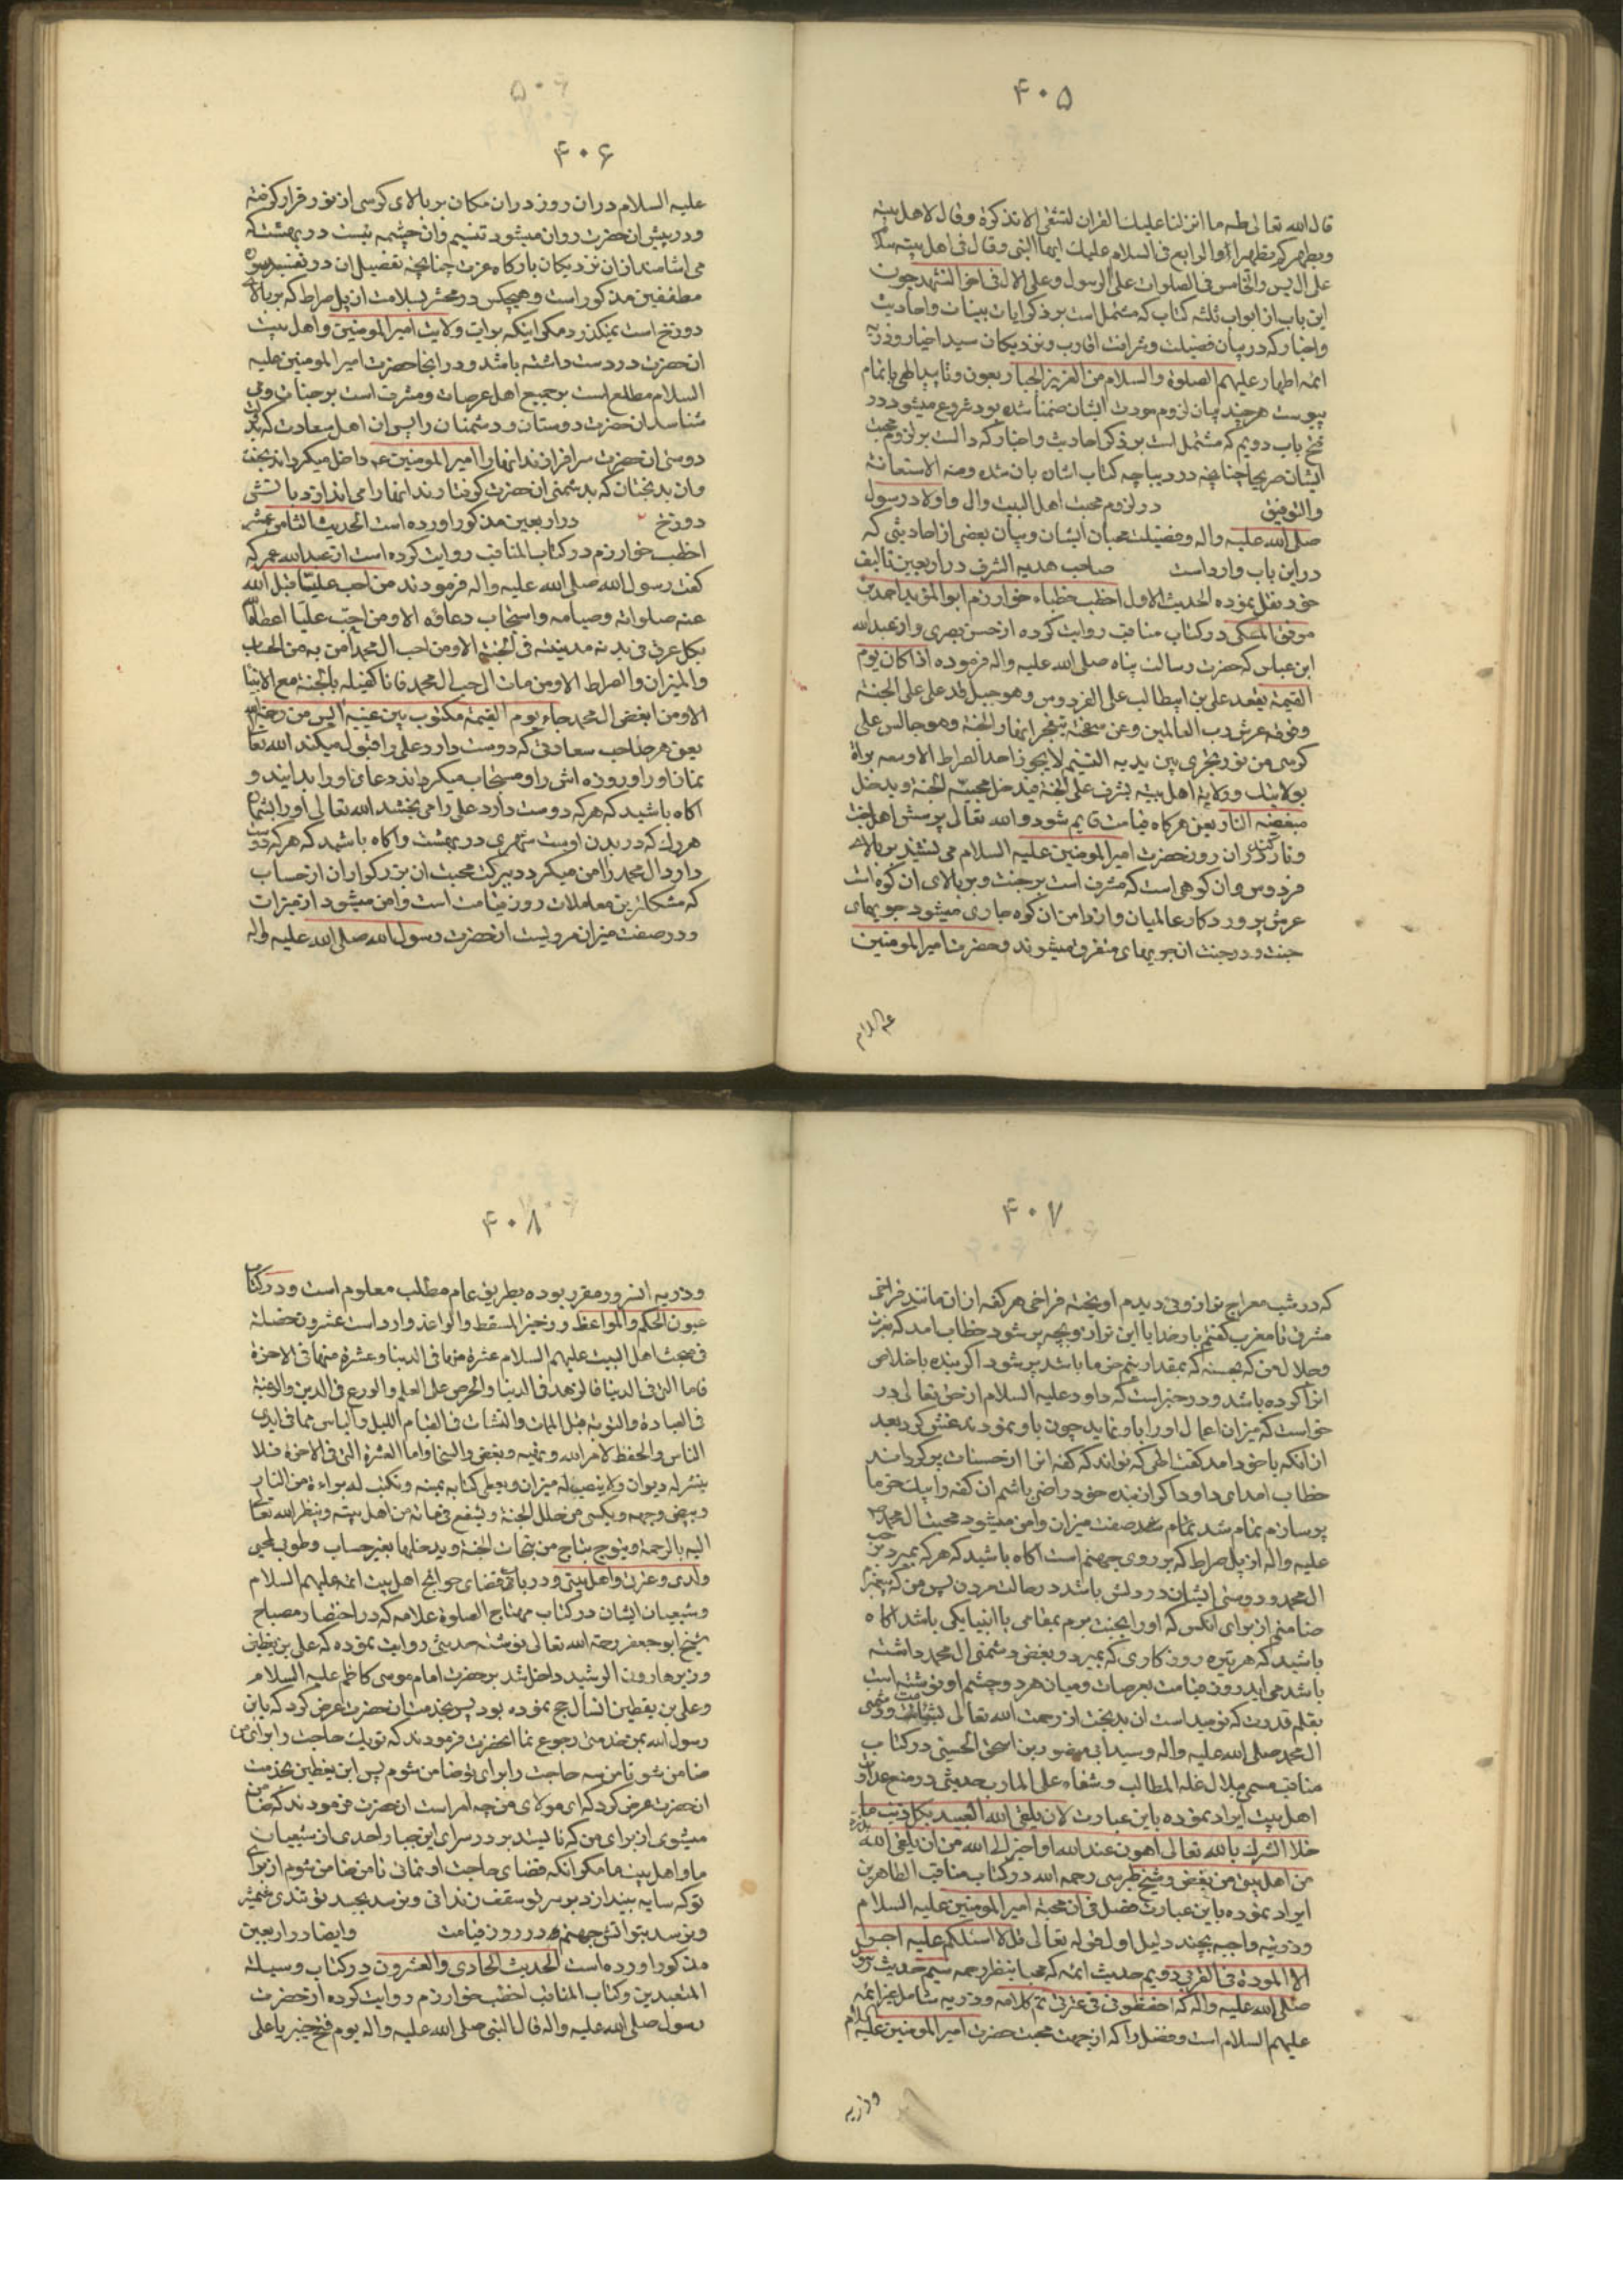 ۴۰۵
قال الله تعالی طه ما انزلنا علیک القران لتشقی الا تذکرة وقال لاهل بیته
ویطهرکم تطهیرا والرابع فی السلام علیک ایها النبی وقال فی اهل بیته سلام
علی ال یس والخامس فی الصلوات علی الرسول وعلی الال فی اخر التشهد چون
این باب از ابواب ثلثه کتاب که مشتمل است بر ذکر ایات بینات واحادیث
واخبار که در بیان فضیلت وشرافت اقارب ونزدیکان سید اخیار وذریه
ائمه اطهار علیهم الصلوة والسلام من العزیز الجبار بعون وتایید الهی باتمام
پیوست هر چند بیان لزوم مودت ایشان ضمنا شده بود شروع میشود در
فتح باب دویم که مشتمل است بر ذکر احادیث واخبار که دالست بر لزوم محبت
ایشان صریحا چنانچه در دیباچه کتاب اشاره بان شده ومنه الاستعانة
والتوفیق در لزوم محبت اهل البیت وال واولاد رسول
صلی الله علیه واله وفضیلت محبان ایشان وبیان بعضی از احادیثی که
در این باب وارد است صاحب هدیه الشرف در اربعین تالیف
خود نقل نموده الحدیث الاول اخطب خطباء خوارزم ابو المؤید احمد بن
موفق المکی در کتاب مناقب روایت کرده از حسن بصری واز عبد الله
ابن عباس که حضرت رسالت پناه صلی الله علیه واله فرموده اذا کان یوم
القیمة یقعد علی بن ابیطالب علی الفردوس وهو جبل قد علی علی الجنة
وفوقه عرش رب العالمین وعن سخنه تتفجر انهار الجنة وهو جالس علی
کرسی من نور یجری بین یدیه التسنیم لا یجوز احد الصراط الا ومعه براة
بولایتک وولایة اهل بیته یشرف علی الجنة فیدخل محبیه الجنة ویدخل
مبغضیه النار یعنی هر گاه قیامت قایم شود والله تعالی پرسش اهل جنت
ونار کند در ان روز حضرت امیر المومنین علیه السلام می نشیند بر بالای
فردوس وان کوهی است که مشرف است بر جنت وبر بالای ان کوه است
عرش پرورد کار عالمیان واز دامن ان کوه جاری میشود جویهای
جنت ودر جنت ان جویهای متفرق میشوند وحضرت امیر المومنین
علیه السلام
۴۰۶
علیه السلام در ان روز در ان مکان بر بالای کرسی از نور قرار گرفته
ودر پیش ان حضرت روان میشود تسنیم وان چشمه ئیست در بهشت که
می اشامند از ان نزدیکان بارکاه عزت چنانچه تفضیل ان در تفسیر سوره
مطففین مذکور است وهیچکس در محشر بسلامت از پل صراط که بر بالای
دوزخ است نمیکذرد مکر اینکه برات ولایت امیر المومنین واهل بیت
ان حضرت در دست داشته باشد ودر انجا حضرت امیر المومنین علیه
السلام مطلع است بر جمیع اهل عرصات ومشرف است بر جنات ومی
شناسد ان حضرت دوستان ودشمنان را پس ان اهل سعادت که بر
دوستی ان حضرت سرافرازند انها را امیر المومنین ع داخل میکرداند بجنت
وان بدبختان که بدشمنی ان حضرت کرفتارند انها را می اندازد باتش
دوزخ در اربعین مذکور اورده است الحدیث الثامن عشر
اخطب خوارزم در کتاب المناقب روایت کرده است از عبد الله عمر که
کفت رسول الله صلی الله علیه واله فرمودند من احب علیا قبل الله
عنه صلواته وصیامه واستجاب دعاؤه الا ومن احب علیا اعطاه الله
بکل عرق فی بدنه مدینة فی الجنة الا ومن احب ال محمد امن به من الحساب
والمیزان والصراط الا ومن مات علی حب ال محمد فانا کفیله بالجنة مع الانبیا
الا ومن ابغض ال محمد جاء یوم القیمة مکتوب بین عینیه ایس من رحمة الله
یعنی هر صاحب سعادتی که دوست دارد علی را قبول میکند الله تعا
نماز او را وروزه اش را ومستجاب میکرداند دعای او را بدانید و
اکاه باشید که هر که دوست دارد علی را می بخشد الله تعالی او را بشمار
هر رک که در بدن اوست شهری در بهشت واکاه باشید که هر که دوست
دارد ال محمد را امن میکردد ببرکت محبت ان بزرکواران از حساب
که مشکلترین معاملات روز قیامت است وامن میشود از میزان
ودر صفت میزان مرویست از حضرت رسول الله صلی الله علیه واله
۴۰۷
که در شب معراج ترازوئی دیدم اویخته فراخی هر کفه از ان مانند فراخی
مشرق تا مغرب کفتم بار خدایا این ترازو بچه پر شود خطاب امد که بعزت
وجلال من که بحسنه که بمقدار نیم خرما باشد پر شود اکر بنده باخلاص
انرا کرده باشد ودر خبر است که داود علیه السلام از حق تعالی در
خواست که میزان اعمال او را باو نماید چون باو نمودند غش کرد بعد
از انکه با خود امد کفت الهی که تواند که کفه انرا از حسنات پر کرداند
خطاب امد ای داود اکر از بنده خود راضی باشم ان کفه را بیک خرما
پر سازم تمام شد صفت میزان وامن میشود محبت ال محمد
علیه واله از پل صراط که بر روی جهنم است اکاه باشید که هر که بمیرد بر حب
ال محمد ودوستی ایشان در دلش باشد در حالت مردن پس من که پیغمبرم
ضامنم از برای انکس که او را بجنت برم بمقامی با انبیا یکی باشد اکاه
باشید که هر تیره روزکاری که بمیرد وبغض ودشمنی ال محمد داشته
باشد می اید روز قیامت بعرصات ومیان هر دو چشم او نوشته است
بقلم قدرت که نومید است ان بدبخت از رحمت الله تعالی بشأمت دشمنی
ال محمد صلی الله علیه واله وسید ابی منصور بن اسحق الحسینی در کتاب
مناقب مسمی ببلال غلة المطالب وشفاء علی المارب حدیثی در منع عداوت
اهل بیت ایراد نموده باین عبارت لان یلقی الله العبید بکل ذنب ما
خلا الشرک بالله تعالی اهون عند الله او اخیر الی الله من ان یلقی الله
من اهل بیتی من بغض وشیخ طبرسی رحمه الله در کتاب مناقب الطاهرین
ایراد نموده باین عبارت فصل فی ان محبة امیر المومنین علیه السلام
وذریته واجبه بچند دلیل اول قوله تعالی قل لا اسئلکم علیه اجرا
الا المودة فی القربی دویم حدیث ائمه که محبنا ینتظر رحمه سیم حدیث رسول
صلی الله علیه واله که احفظونی فی عترتی تم کلامه وذریه شامل غیر ائمه
علیهم السلام است وفضل را که از جهت محبت حضرت امیر المومنین علیه السلام
وذریه
۴۰۸
وذریه انسرور مقرر بوده بطریق عام مطلب معلوم است ودر کتاب
عیون الحکم والمواعظ وذخیر المسقط والواعظ وارد است عشرون خصلة
فی محبت اهل البیت علیهم السلام عشرة منها فی الدنیا وعشرة منها فی الاخرة
فاما التی فی الدنیا فالزهد فی الدنیا والحرص علی العلم والورع فی الدین والرغبة
فی العبادة والتوبة قبل الممات والنشاط فی القیام اللیل والیاس مما فی ایدی
الناس والحفظ لامر الله ونهیه وبغض والسخا واما العشرة التی فی الاخرة فلا
ینشر له دیوان ولا ینصب له میزان ویعطی کتابه بیمینه وتکتب له براءة من النار
ویبیض وجهه ویکسی من حلل الجنة ویشفع فی مائة من اهل بیته وینظر الله تعا
الیه بالرحمة ویتوج بتاج من تیجان الجنة ویدخلها بغیر حساب وطوبی لمحبی
ولدی وعترتی واهل بیتی ودر باب قضای حوائج اهل بیت ائمه علیهم السلام
وشیعیان ایشان در کتاب منهاج الصلوة علامه که در اختصار مصباح
شیخ ابو جعفر رحمة الله تعالی نوشته حدیثی روایت نموده که علی بن یقطین
وزیر هارون الرشید داخل شد بر حضرت امام موسی کاظم علیه السلام
وعلی بن یقطین انسال حج نموده بود پس بخدمت ان حضرت عرض کرد که یابن
رسول الله بمن خدمتی رجوع نما انحضرت فرمودند که تو یک حاجت را برای من
ضامن شو تا من سه حاجت را برای تو ضامن شوم پس ابن یقطین بخدمت
ان حضرت عرض کرد که ای مولای من چه امر است ان حضرت فرمودند که ضامن
میشوی از برای من که نایستد بر در سرای این جبار احدی از شیعیان
ما واهل بیت ما مکر انکه قضای حاجت او نمائی تا من ضامن شوم از برای
تو که سایه بیندازد بر سر تو سقف زندانی ونرسد بجسد تو تندی شمشیر
ونرسد بتو اتش جهنم در روز قیامت وایضا در اربعین
مذکور اورده است الحدیث الحادی والعشرون در کتاب وسیلة
المتعبدین وکتاب المناقب اخطب خوارزم روایت کرده از حضرت
رسول صلی الله علیه واله قال النبی صلی الله علیه واله یوم فتح خیبر یا علی